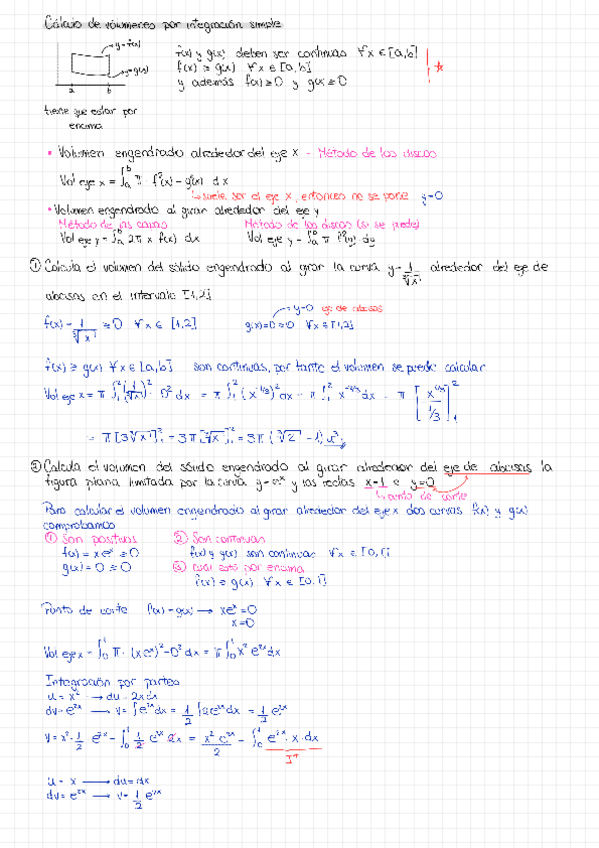 Cálculo de volúmenes por integración simple
y=f(x)
y=g(x)
a b
f(x) y g(x) deben ser continuas ∀x ∈ [a,b]
f(x) ≥ g(x) ∀x ∈ [a,b]
y además f(x) ≥ 0 y g(x) ≥ 0
tiene que estar por
encima
• Volumen engendrado alrededor del eje x - Método de los discos
Vol eje x = ∫ₐᵇ π · f²(x) - g²(x) dx
↳ suele ser el eje x, entonces no se pone y=0
• Volumen engendrado al girar alrededor del eje y
Método de las capas Método de los discos (si se puede)
Vol eje y = ∫ₐᵇ 2π x f(x) dx Vol eje y = ∫ₐᵇ π f²(y) dy
① Calcula el volumen del sólido engendrado al girar la curva y = 1/∛x alrededor del eje de
abscisas en el intervalo [1,2]
y=0 eje de abscisas
f(x) = 1/∛x ≥ 0 ∀x ∈ [1,2] g(x)=0 ≥ 0 ∀x ∈ [1,2]
f(x) ≥ g(x) ∀x ∈ [a,b] son continuas, por tanto el volumen se puede calcular
Vol eje x = π ∫₁² (1/∛x)² - 0² dx = π ∫₁² (x^-1/3)² dx = π ∫₁² x^-2/3 dx = π [x^1/3 / 1/3]₁²
= π [3 ∛x]₁² = 3π [∛x]₁² = 3π (∛2 - 1) u³
② Calcula el volumen del sólido engendrado al girar alrededor del eje de abscisas la
figura plana limitada por la curva y = eˣ y las rectas x=1 e y=0
↳ punto de corte
Para calcular el volumen engendrado al girar alrededor del eje x dos curvas f(x) y g(x)
comprobamos
① Son positivas ② Son continuas
f(x) = xeˣ ≥ 0 f(x) y g(x) son continuas ∀x ∈ [0,1]
g(x) = 0 ≥ 0 ③ cuál está por encima
f(x) ≥ g(x) ∀x ∈ [0,1]
Punto de corte f(x) = g(x) → xeˣ = 0
x = 0
Vol eje x = ∫₀¹ π · (xeˣ)² - 0² dx = π ∫₀¹ x² e²ˣ dx
Integración por partes
u = x² → du = 2x dx
dv = e²ˣ → v = ∫ e²ˣ dx = 1/2 ∫ 2e²ˣ dx = 1/2 e²ˣ
V = x² · 1/2 e²ˣ - ∫₀¹ 1/2 e²ˣ 2x = x² e²ˣ/2 - ∫₀¹ e²ˣ · x · dx
u = x → du = dx
dv = e²ˣ → v = 1/2 e²ˣ